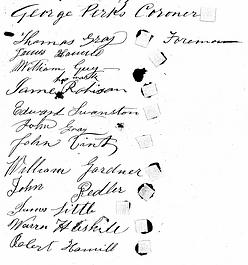 George Perks Coroner
Thomas Gray Foreman
James
William Guy
his mark
James Robison
Edward Swanston
John Gray
John Vint
William Gardner
John Redler
James Little
Warren Haskill
Robert Hamill